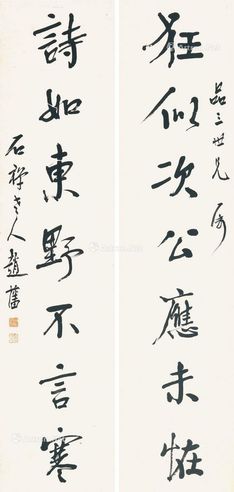 品三世兄属
狂似次公應未怪
詩如東野不言寒
石禅老人趙藩